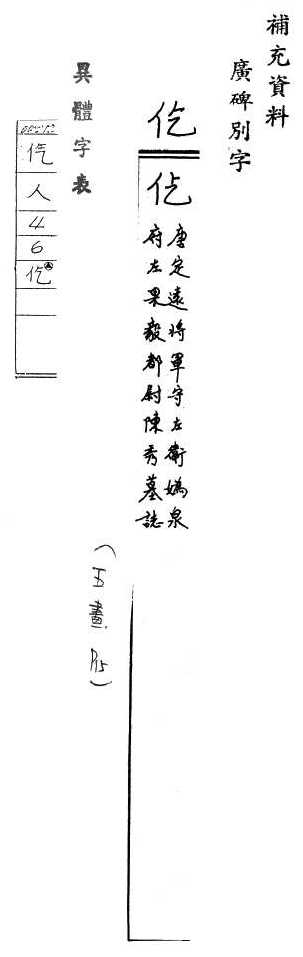 補充資料
廣碑別字
仡
仡
唐定遠將軍守左衛嬀泉
府左果毅都尉陳秀墓誌
(五畫 P15)
異體字表
㐹
人
4
6
仡